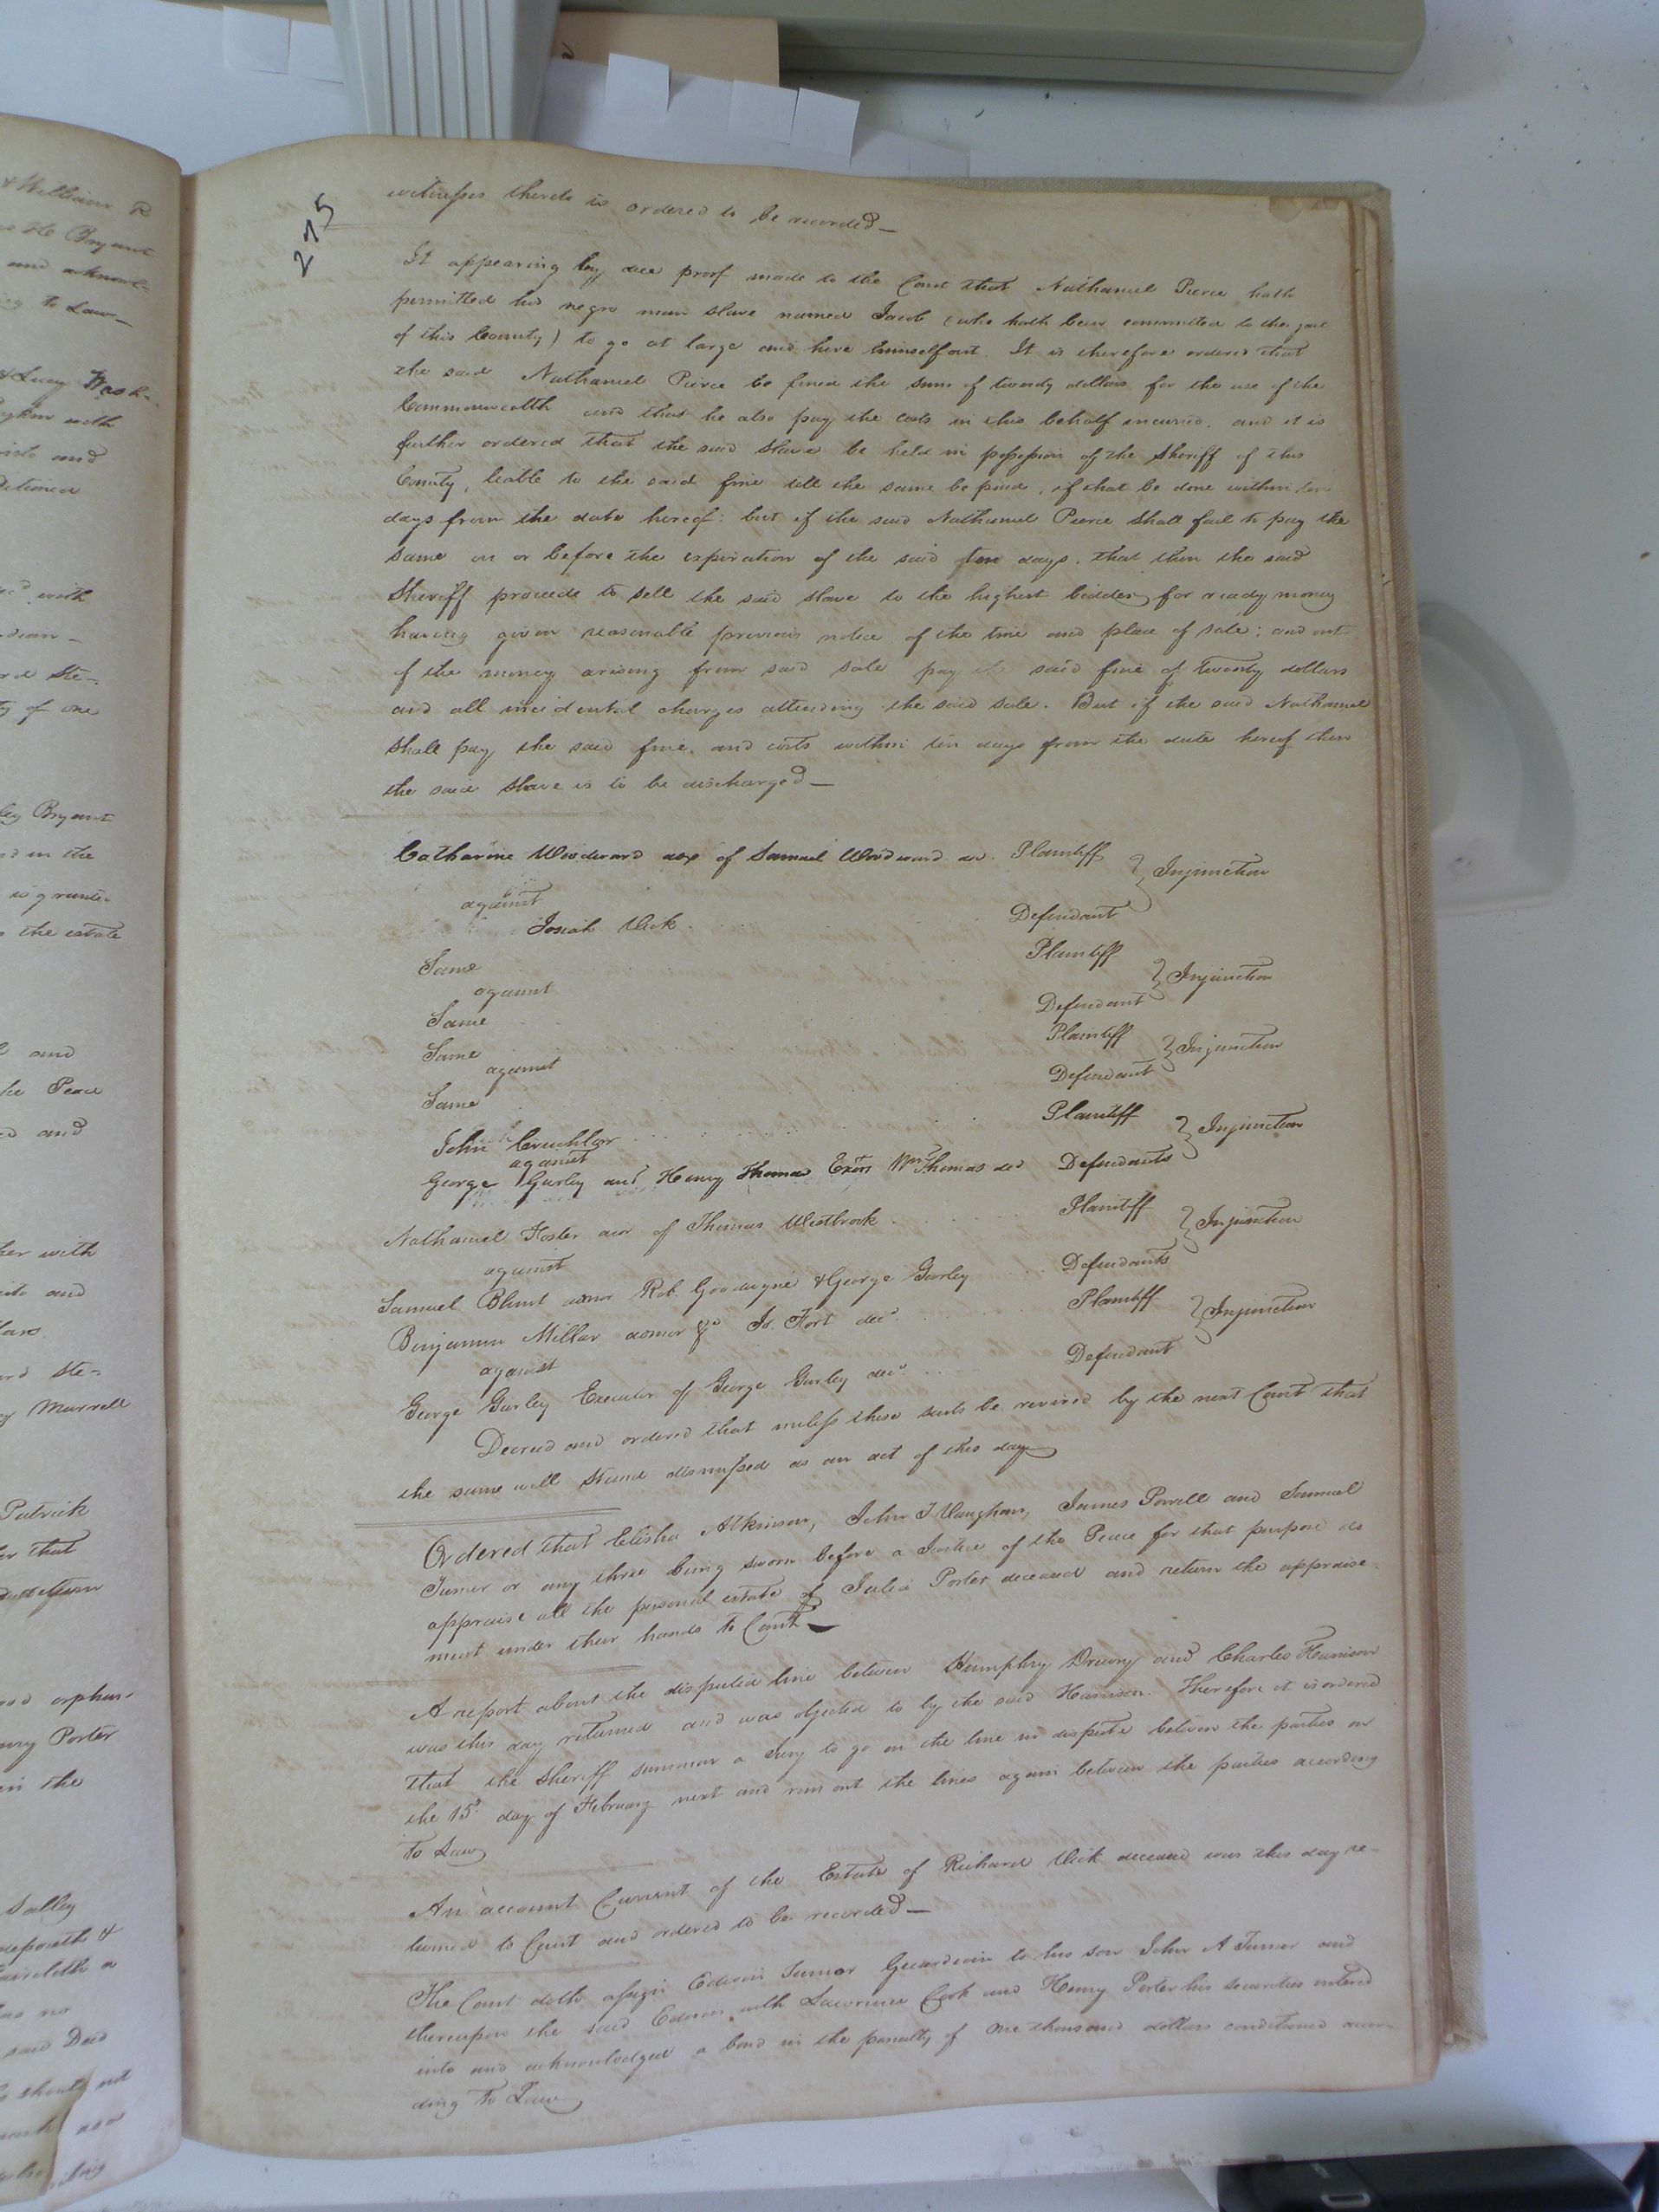 275
witnesses thereto is ordered to be recorded —
It appearing by due proof made to the Court that Nathaniel Pierce hath
permitted his negro man slave named Jacob (who hath been committed to the jail
of this County) to go at large and hire himself out. It is therefore ordered that
the said Nathaniel Pierce be fined the sum of twenty dollars for the use of the
Commonwealth and that he also pay the costs in this behalf incurred. and it is
further ordered that the said Slave be held in possession of the Sheriff of this
County, liable to the said fine till the same be paid, if that be done within ten
days from the date hereof: but if the said Nathaniel Pierce shall fail to pay the
same on or before the expiration of the said ten days. that then the said
Sheriff proceede to sell the said slave to the highest bidder for ready money
having given reasonable previous notice of the time and place of sale; and out
of the money arising from said sale pay the said fine of twenty dollars
and all incidental charges attending the said sale. But if the said Nathaniel
shall pay the said fine, and costs within ten days from the date hereof then
the said slave is to be discharged —
Catharine Woodward of Samuel Woodward Plaintiff
against } Injunction
Josiah Vick . Defendant
Same Plaintiff
against } Injunction
Same Defendant
Same Plaintiff
against } Injunction
Same Defendant
John Cruchlor Plaintiff
against } Injunction
George Gurley and Henry Thomas Exors Wm Thomas decd Defendants
Nathaniel Foster of Thomas Westbrook Plaintiff
against } Injunction
Samuel Blunt admor Rob. Goodwyne & George Gurley Defendants
Benjamin Millar admor Js. Fort decd. Plaintiff
against } Injunction
George Gurley Executor of George Gurley decd. Defendant
Decreed and ordered that unless these suits be revived by the next Court that
the same will stand dismissed as an act of this day
Ordered that Elisha Atkinson, John T Vaughan, James Powell and Samuel
Turner or any three being sworn before a Justice of the Peace for that purpose do
appraise all the personal estate of Julia Porter deceased and return the appraise-
ment under their hands to Court —
A report about the disputed line between Humphry Drewry and Charles Harrison
was this day returned and was objected to by the said Harrison. Therefore it is ordered
that the Sheriff summon a Jury to go on the line in dispute between the parties on
the 15th day of February next and run out the lines again between the parties according
to Law
An account Current of the Estate of Richard Vick deceased was this day re-
turned to Court and ordered to be recorded —
The Court doth assign Edwin Turner Guardian to his son John A Turner and
thereupon the said Edwin with Lawrence Cook and Henry Porter his securities entered
into and acknowledged a bond in the penalty of One thousand dollars conditioned accor-
ding to Law